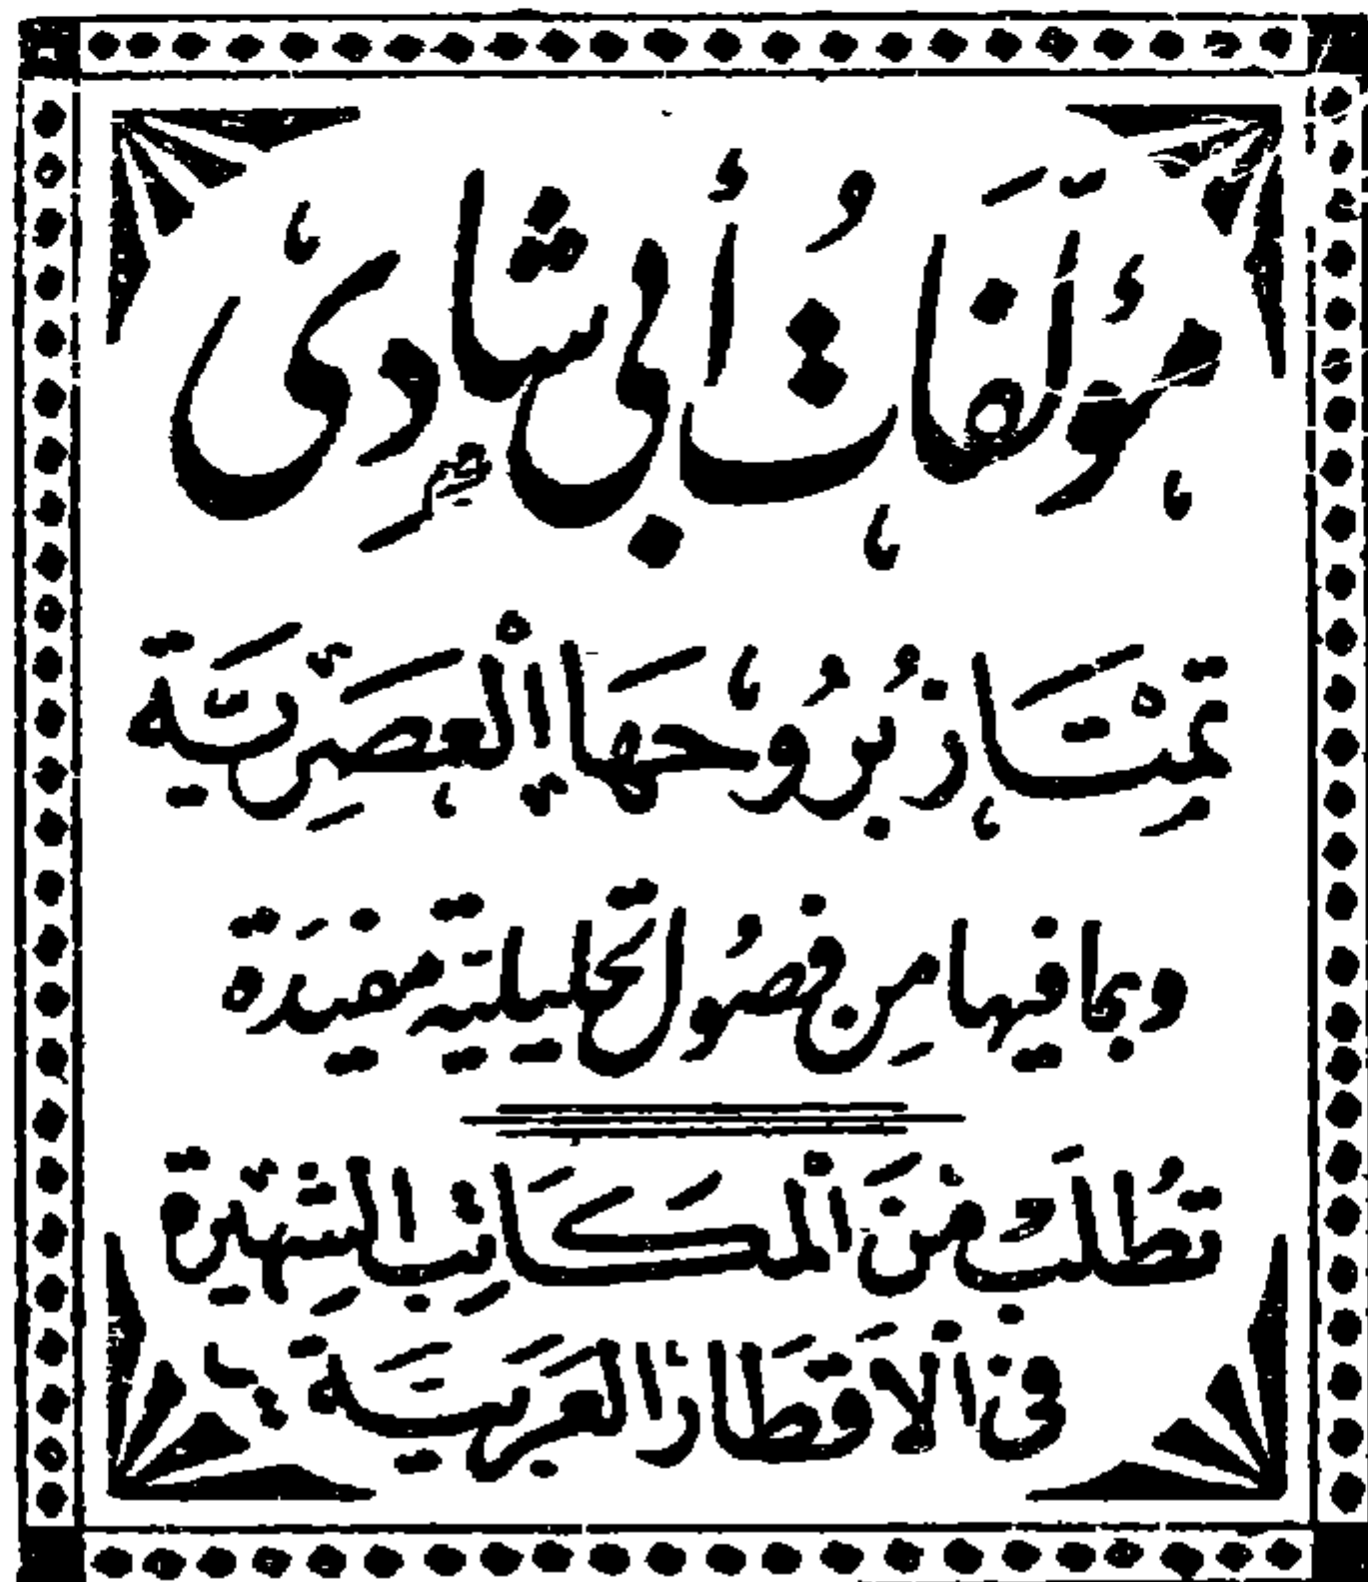 مؤلَّفَاتُ أبي شادى
تمتَاز بُروحهَا العصَريَّة
وبما فيها مِن فصُول تحليلية مفيدَة
تطُلَبُ منَ المكَاتِب الشهيرة
فى الاَقطَار العَربيَّة